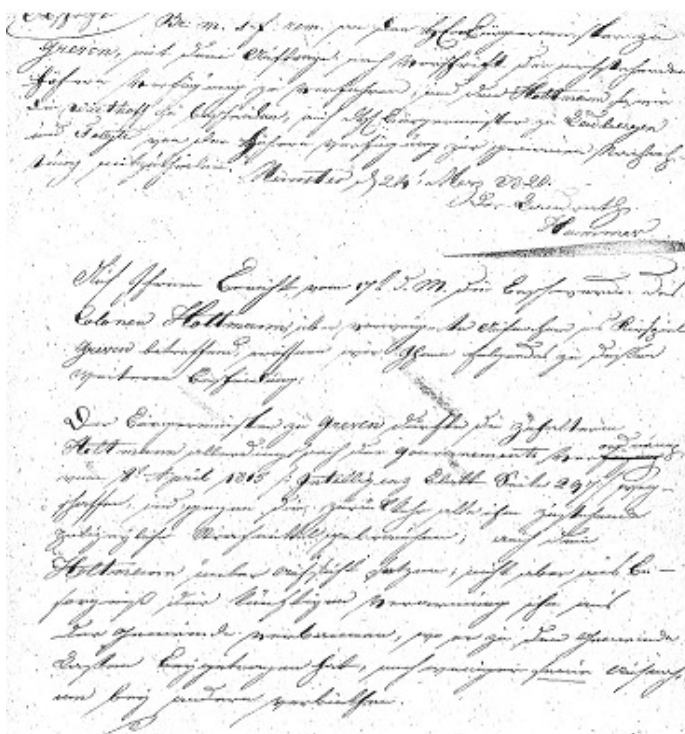 Br. m. s. f. rem. an den H. Bürgermeister zu
Greven, mit dem Auftrage, nach Vorschrift der nachstehenden
höhern Verfügung zu verfahren, und den Holtmann so wie
die zu bescheiden, auch Bürgermeister zu
und Telgte von der höhern Verfügung zur genauen Beach-
tung mitzutheilen. Münster, d 24t März 1820.
Der Landrath
Hammer
Auf Ihren Bericht vom 17t d. M. die Beschwerde des
Colonen Holtmann über verweigerte Aufnahme im Kirspiel
Greven betreffend, eröffnen wir Ihnen folgendes zu dessen
weiteren Bescheidung.
Der Bürgermeister zu Greven durfte die Zuhälterin
Holtmann allerdings nach der Gouvernements Verordnung
vom 8t April 1815 Intelligenz Blatt Seite 297 weg-
schaffen, und gegen die zurück alle ihm zustehende
polizeyliche gebrauchen; auch den
Holtmann unter Aufsicht setzen; nicht aber aus Be-
sorgniß der künftigen Verarmung ihn aus
der Gemeinde verbannen, wo er zu den Gemeinde
Lasten beygetragen hat, noch weniger seine Aufnah-
me bey andern verbiethen.